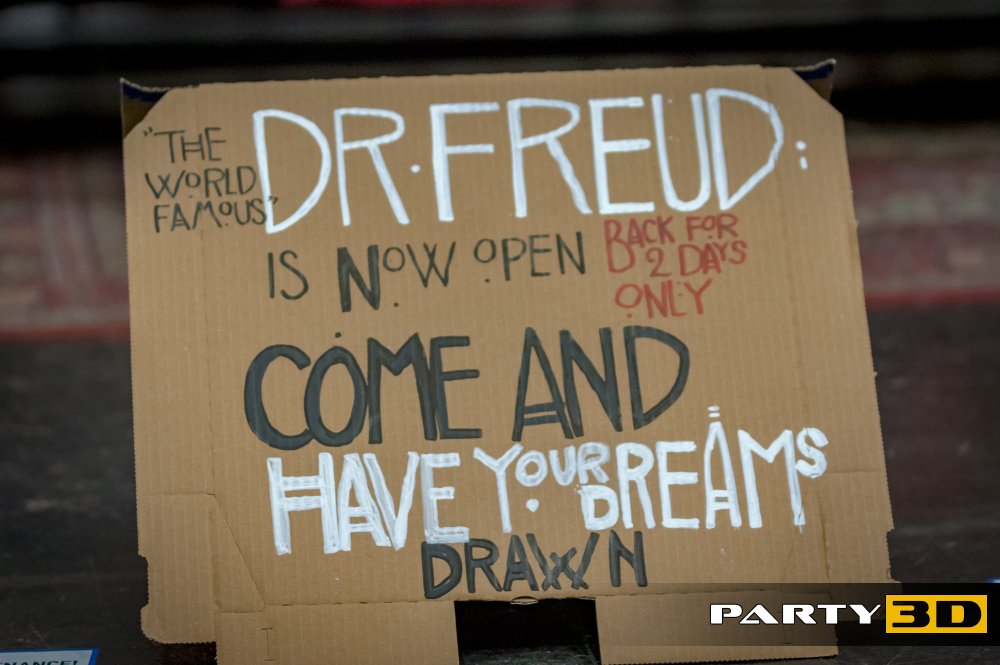 "THE
WORLD
FAMOUS"
DR. FREUD:
IS NOW OPEN
BACK FOR
2 DAYS
ONLY
COME AND
HAVE YOUR DREAMS
DRAWN
PARTY 3D